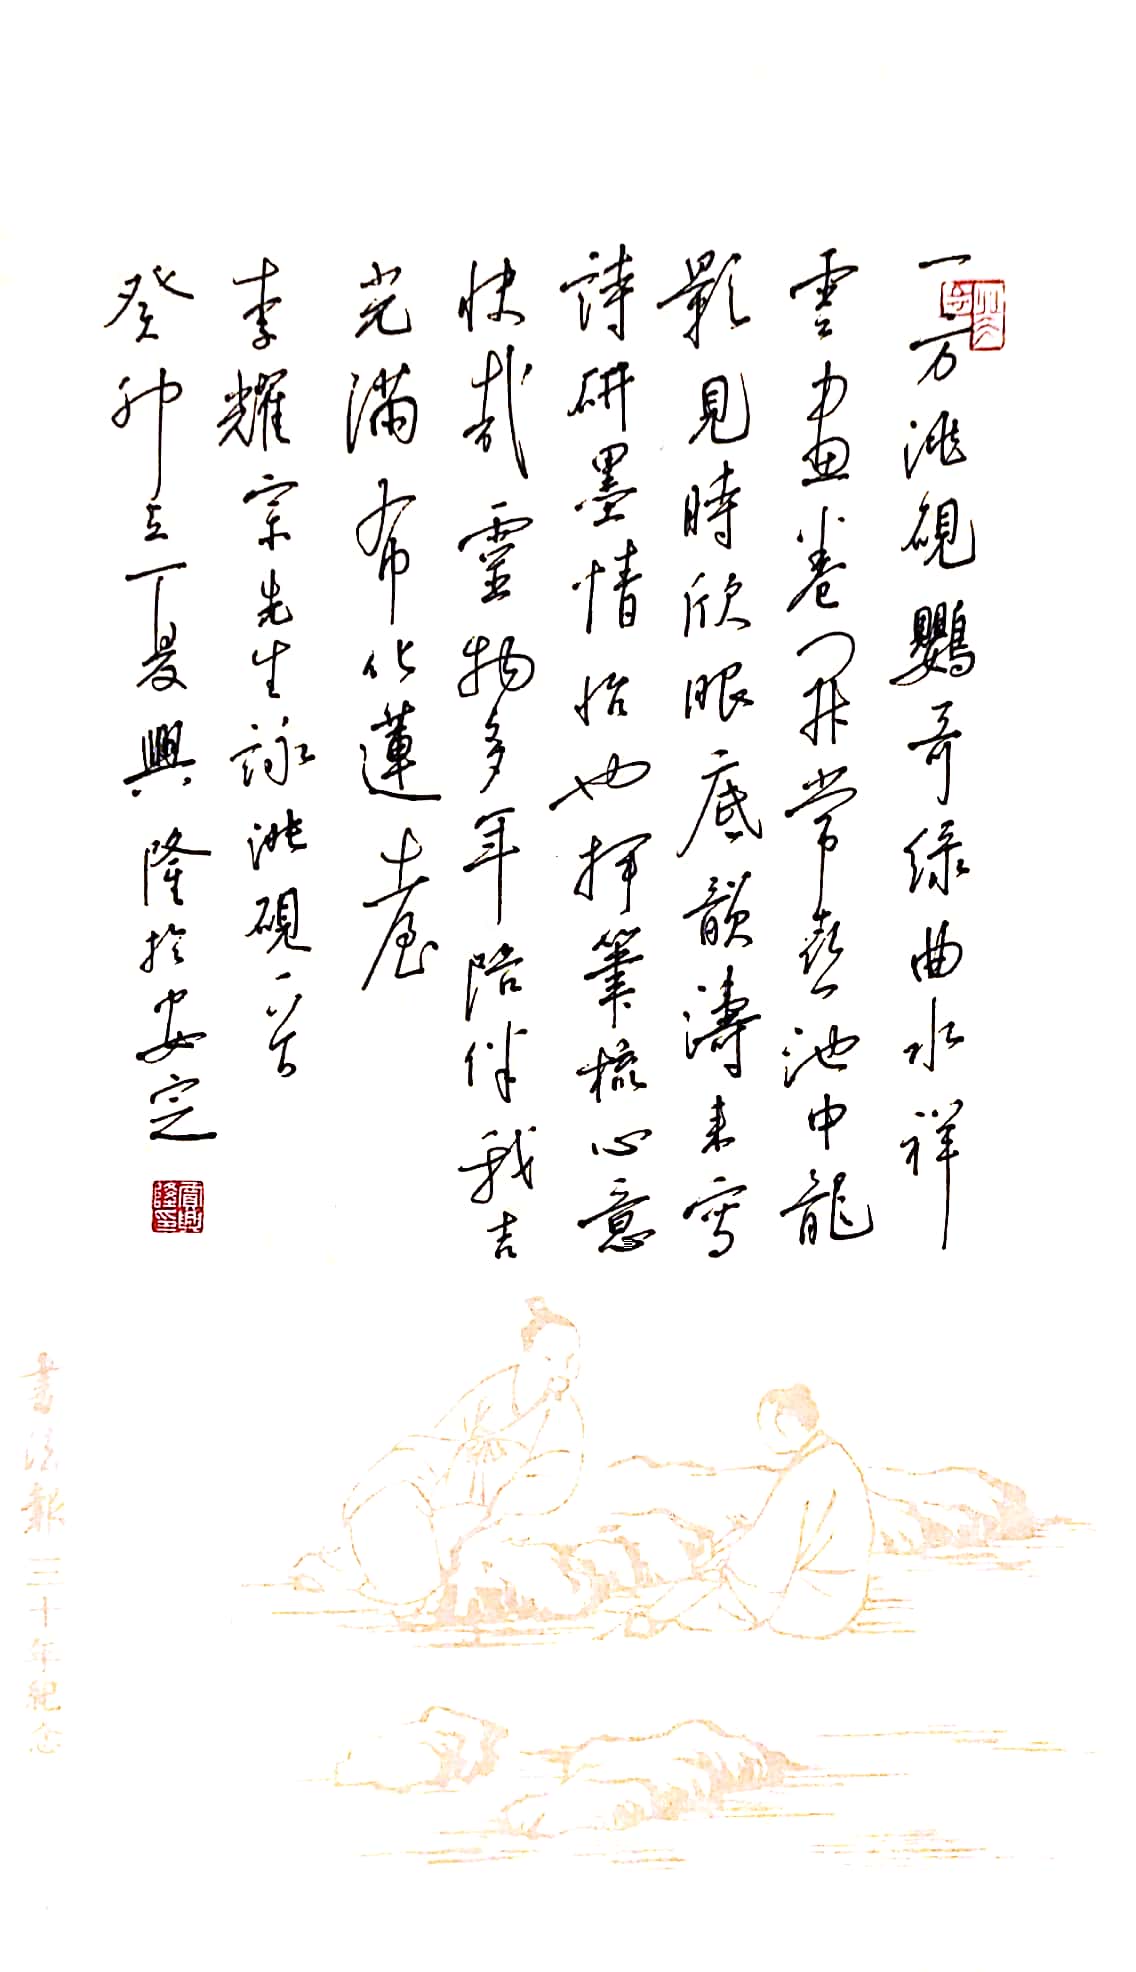 一方洮硯鸚哥绿曲水祥
雲畫卷開常喜池中龍
影見時欣眼底韻濤来寫
詩研墨情怡也揮筆梳心意
快哉靈物多年陪伴我吉
光滿布化蓮臺
李耀宗先生詠洮硯一首
癸卯立夏興隆於安定
書法報三十年紀念